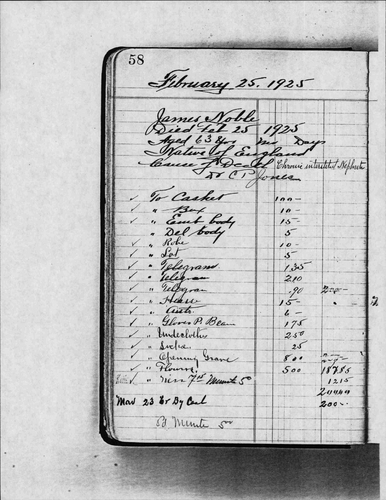 58
February 25, 1925
James Noble
Died Feb 25 1925
Aged 63 Yrs Mo Days
Native of England
Cause of Death Chronic interstitial Nephritis
Dr C P Jones
✓ To Casket 100 —
✓ " Box 10 —
✓ " Emb body 15 —
" Del body 5
✓ " Robe 10 —
✓ " Lot 5
✓ " Telegram 135
✓ " Telegram 210
✓ " Telegram .90
✓ " Hearse 15 —
✓ " Auto 6 —
✓ " Gloves P. Bear 175
✓ " Underclothes 250
✓ " Socks 25
✓ " Opening Grave 800
✓ " Flowers 500 187.85
" 7th 50 1215
200 —
Mar 23 Cr By Cash 200 —
50